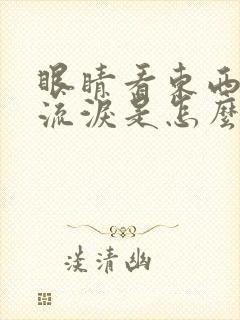 眼睛看東西
流淚是怎麼
淡清幽